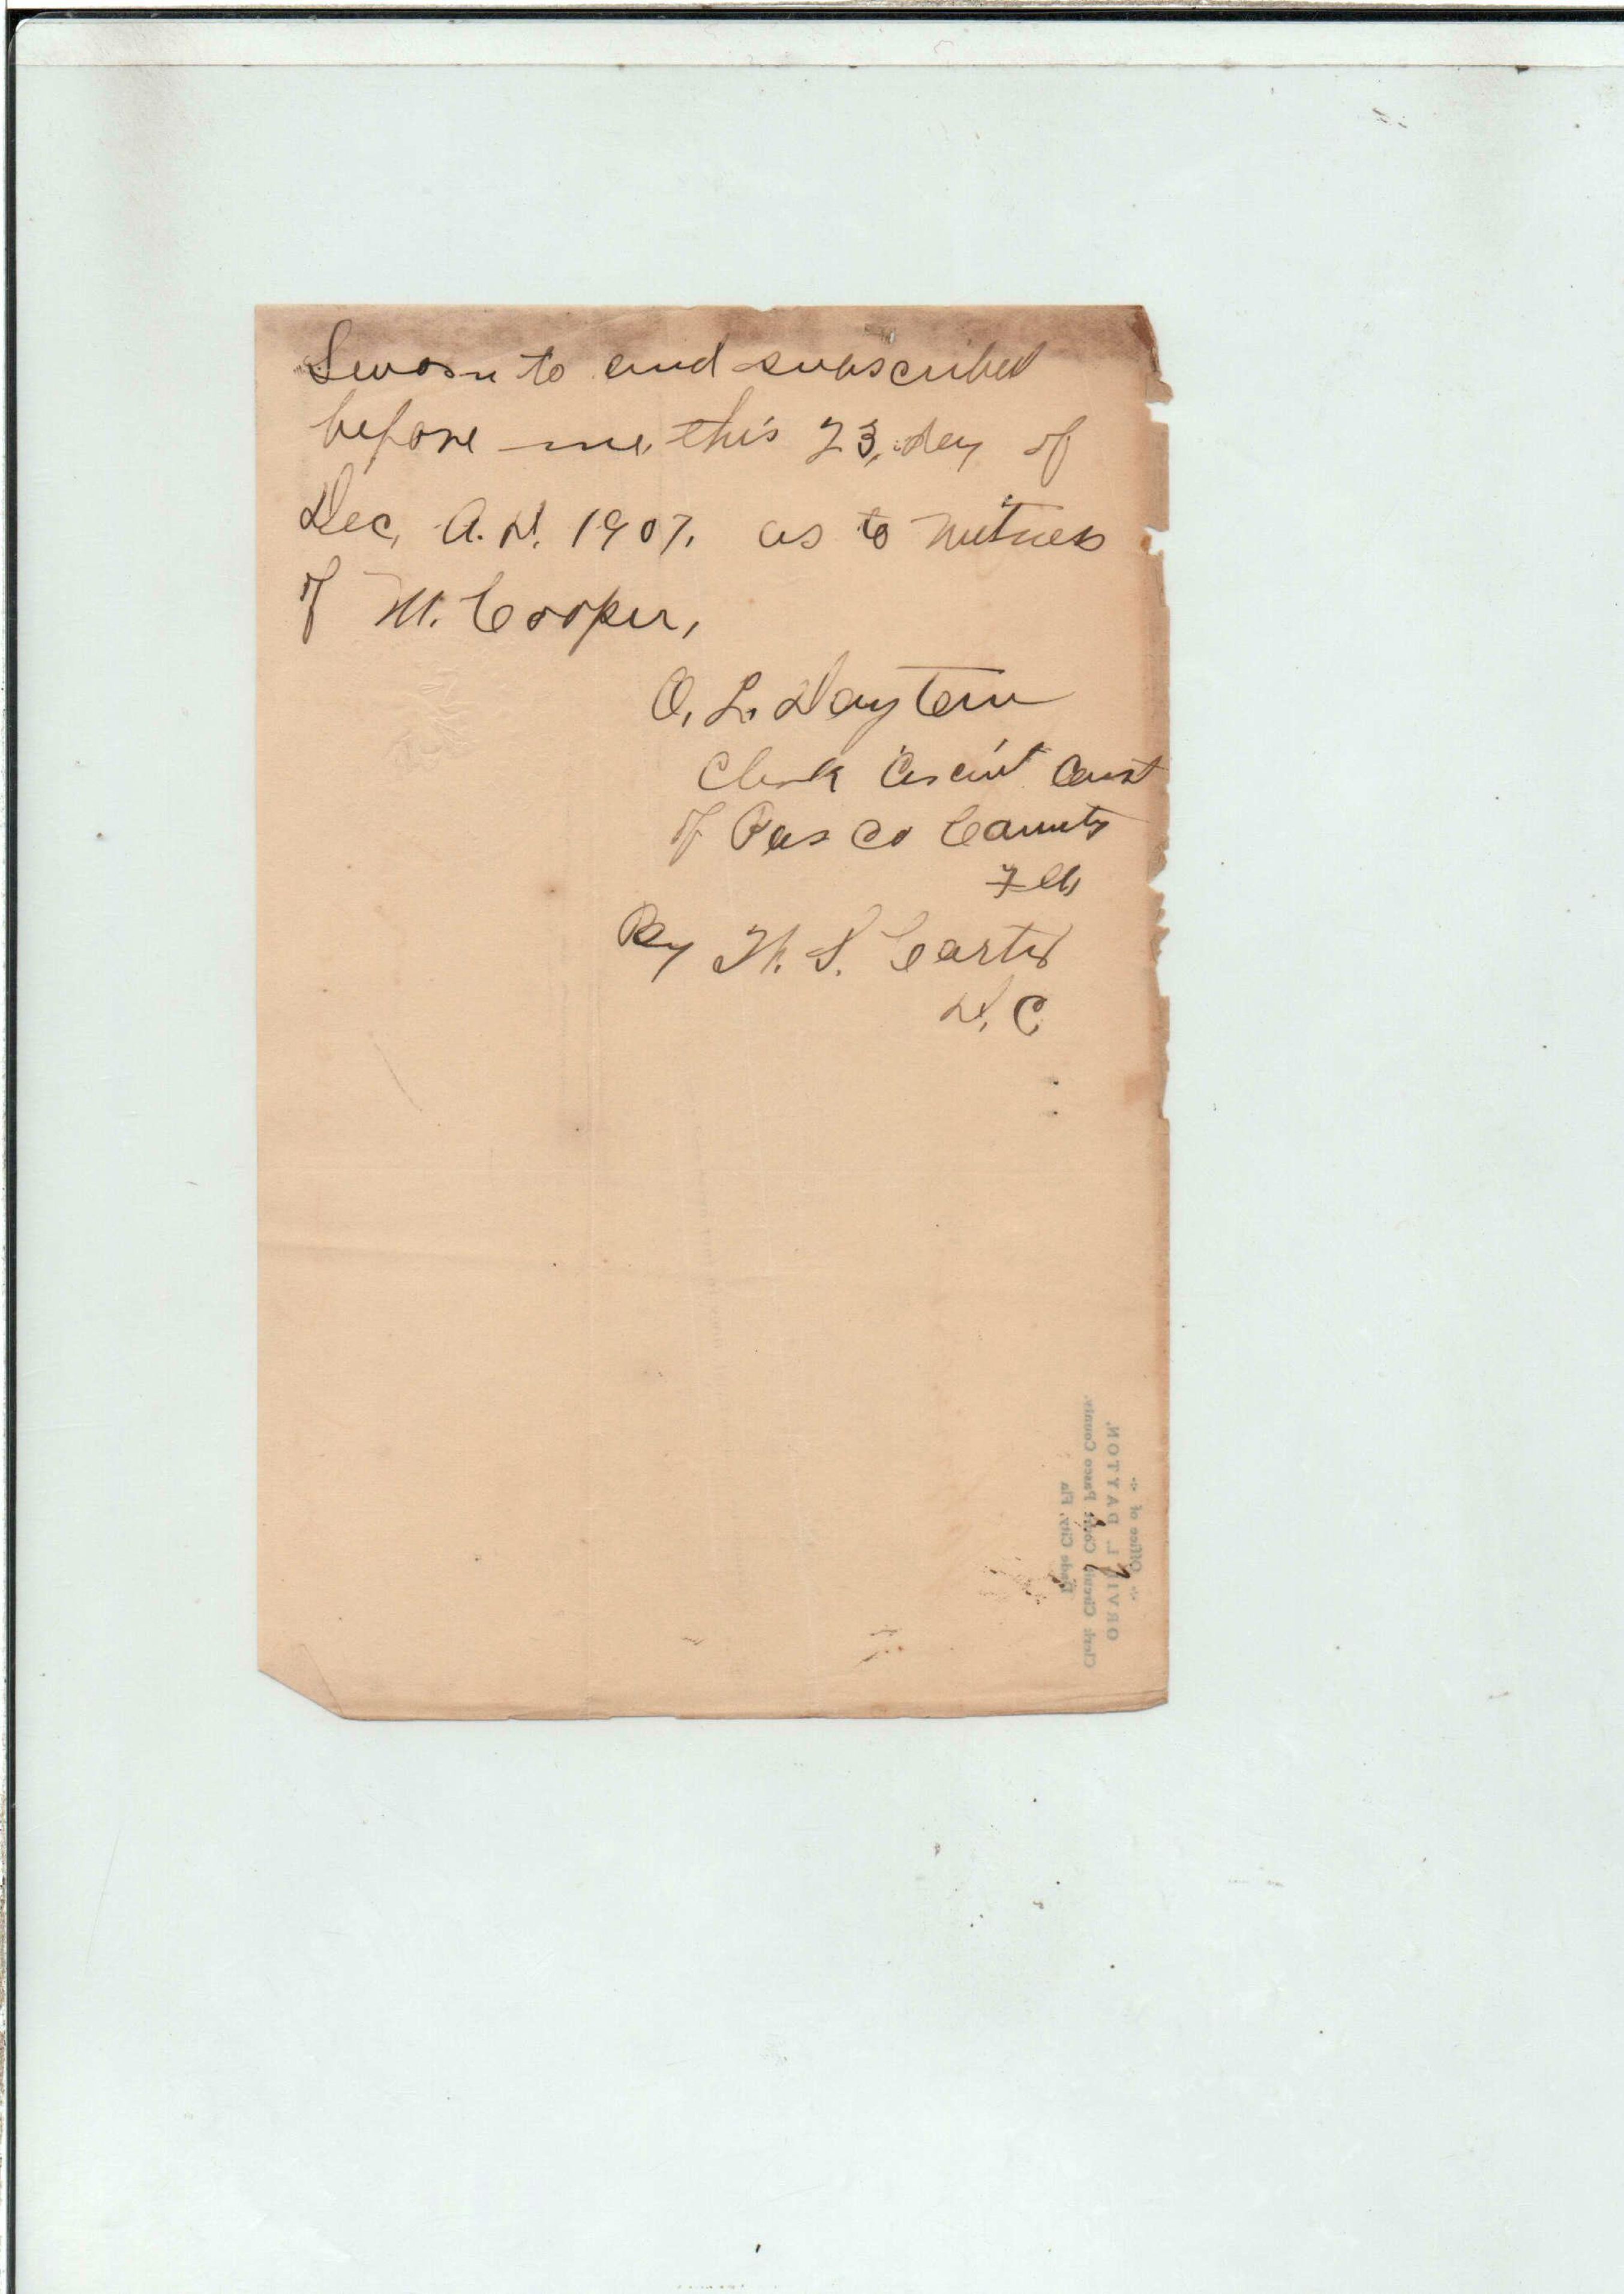 Sworn to and subscribed
before me, this 23, day of
Dec, A.D. 1907. as to witness
of M. Cooper,
O. L. Dayton
Clerk Circuit Court
of Pasco County
Fla
By H. S. Carter
D. C
Office of
ORVIL L. DAYTON,
Clerk Circuit Court Pasco County,
Dade City, Fla